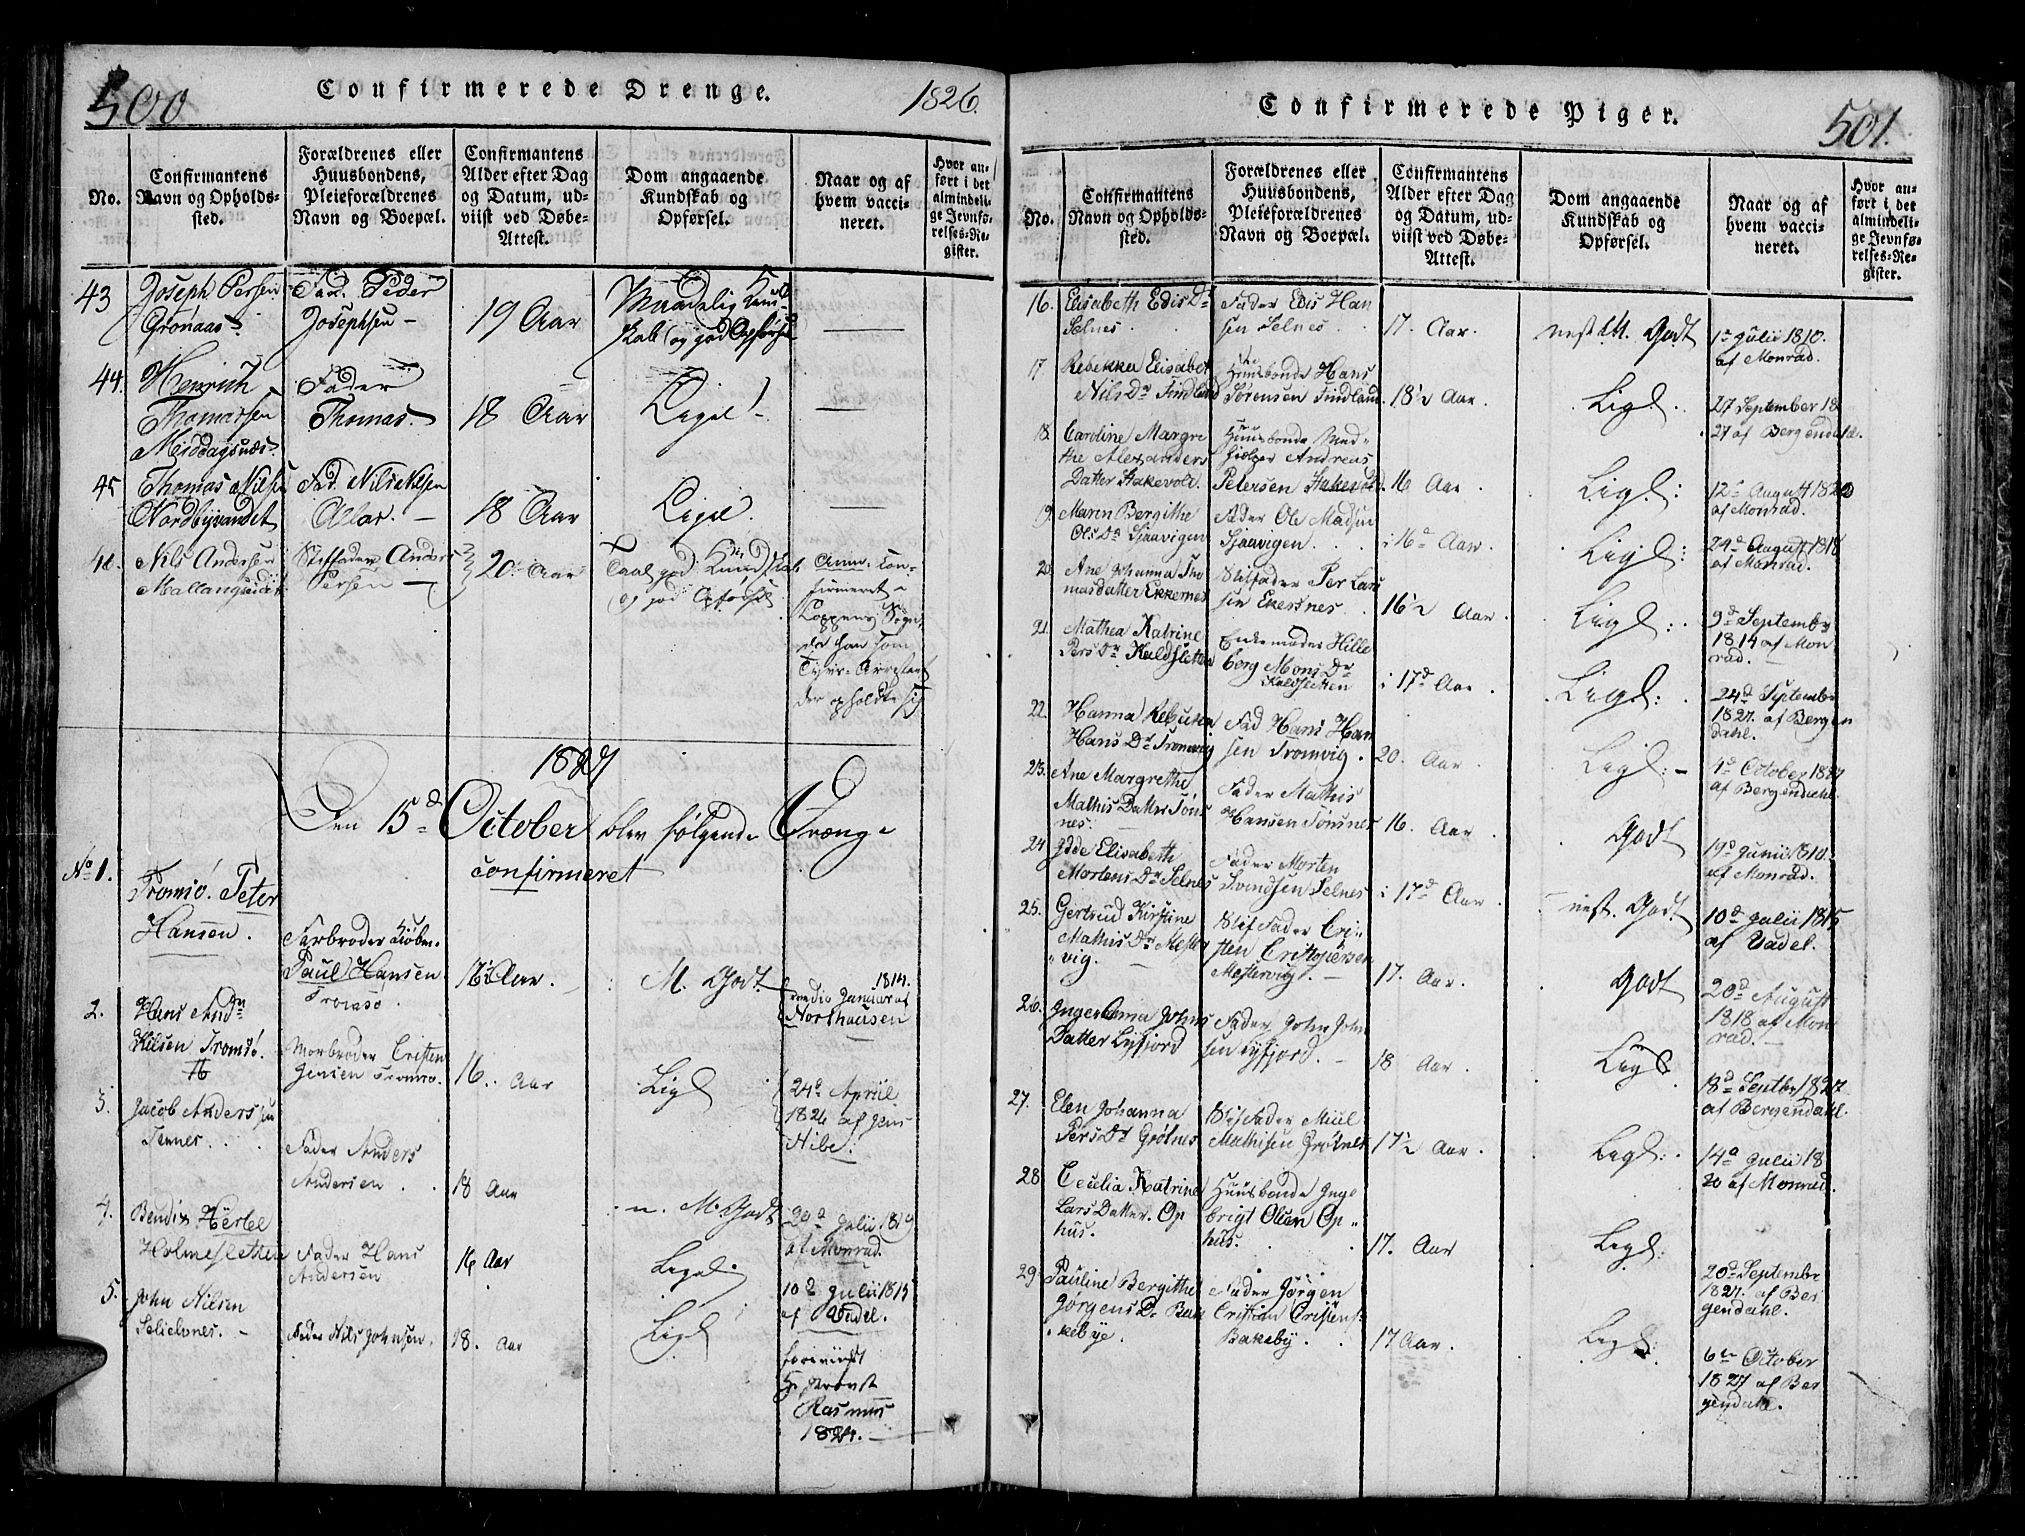 500
Confirmerede Drenge.
1826.
No.
Confirmantens Navn og Opholdssted.
Forældrenes eller Huusbondens, Pleieforældrenes Navn og Boepæl.
Confirmantens Alder efter Dag og Datum, udviist ved Døbe-Attest.
Dom angaaende Kundskab og Opførsel.
Naar og af hvem vaccineret.
Hvor anført i det almindelige Jevnførelses-Register.
43
Joseph Persen
Grønaas
Fad. Peder
Josephsen
19 Aar
Maadelig Kundskab og god Opførsel
44.
Henrich
Thomassen
Middagsnæs
Fader
Thomas.
18 Aar
Ligel.
45
Thomas Nilsen
Nordbyvandet
Fad. Nils Nilsen
18 Aar
Ligel.
Nils Andersen
Mallangseidet
Stiffader Anders
Persen
20 Aar
Taal. god Kundskab
og god Opførsel
Anm. con-
firmeret
Koppens Sogn,
der han som
Tyvs-Arrestant
der opholdt sig
1827
Den 15d October blev følgende Drænge
confirmeret
No 1.
Tromsö. Peter
Hansen.
Farbroder Kiöbm.
Paul Hansen
Tromsö.
16½ Aar.
M. Godt
1814.
Januar af
Norshausen
2.
Hans And.
Kilsen Tromsö.
Morbroder Cristen
Jensen Tromsö.
16. Aar
Ligl
24d Apriil
1826 af Jens
Hibe.
3.
Jacob Anderssen
Tennes.
Fader Anders
Andersen
18 Aar
n. M. Godt
29d Julii 1819
af Monrad.
4.
Bendix Hertel
Holmesletten
Fader Hans
Andersen
16 Aar
Ligel
10d Julii 1815
af Vadel.
5.
John Nilsen
Selielvnes.
Fader Nils Johnsen
18. Aar
Ligl
foreviist
Hr Provst
Rasmus
1824.
Confirmerede Piger.
501.
No.
Confirmantens Navn og Opholdssted.
Forældrenes eller Huusbondens, Pleieforældrenes Navn og Boepæl.
Confirmantens Alder efter Dag og Datum, udviist ved Døbe-Attest.
Dom angaaende Kundskab og Opførsel.
Naar og af hvem vaccineret.
Hvor anført i det almindelige Jevnførelses-Register.
16.
Elisabeth Edis Dr
Selnes.
Fader Edis Han
sen Selnes
17. Aar.
nest M. Godt
1e Julii 1810.
af Monrad.
17
Rebekka Elisabet
Nils Dr Findland
Huusbonde Hans
Sørensen Findland
18½ Aar.
Ligl.
27 September 18
27 af Bergendahl.
18.
Caroline Margre
the Alexanders
Datter Hakevold.
Huusbonde Med-
hielper Andreas
Petersen Hakevold.
16 Aar
Ligl:
12e August 1820
af Monrad.
19.
Maren Bergithe
Ols Dr Sjaavigen
Fader Ole Madsen
Sjaavigen
i 16d Aar.
Ligl:
24d August 1818
af Monrad.
20
Ane Johanna Tho
masdatter Ekkernes
Stiffader Per Lars
sen Ekernes
16½ Aar
Ligl:
9d September
1814 af Mon
rad.
21.
Mathea Katrine
Pers Dr Kaldsletten
Enkemoder Hille
borg Mons Dr
Kaldsletten
i 17d Aar.
Ligl:
24d September
1827. af Bergen
dahl.
22.
Hanna
Hans Dr Tromvig
Fad Hans Han
sen Tromvig.
20. Aar
Ligl:
4d October 1827
af Bergendahl.
23.
Ane Margrethe
Mathis Datter Tøns
nes.
Fader Mathis
Hansen Tønsnes
16. Aar.
Godt
19d Junii 1810.
af Monrad.
24
Elisabeth
Mortens Dr Selnes
Fader Morten
Svendsen Selnes
i 17d Aar.
nest. Godt
10d Julii 1815
af Vadel.
25.
Gertrud Kirstine
Mathis Dr Mester
vig.
Stif Fader Cri-
sten Cristopersen
Mestervig.
17. Aar.
Godt
20d August
1818 af Mon
rad.
26.
Inger Anna Johns
Datter Lyfjord
Fader John John
sen Lyfjord.
18 Aar.
Ligl
18d Septbr 1827
af Bergendahl.
27.
Elen Johanna
Pers Dr Grøtnes
Stif Fader Miiil
Mathisen Grøtnes
17½ Aar.
Ligl:
14d Julii 18
20 af Monrad.
28
Cecelia Katrine
Lars Datter. Op
hus.
Huusbonde Inge
brigt Olsen Op-
hus.
17. Aar
Ligl:
20d Septembr
1827. af Ber
gendahl.
29.
Pauline Bergithe
Jørgens Dr Bak
kebye.
Fader Jørgen
Cristian Cristens.
Bakeby.
17 Aar.
Ligl:
6te October
1827 af Ber
gendahl.